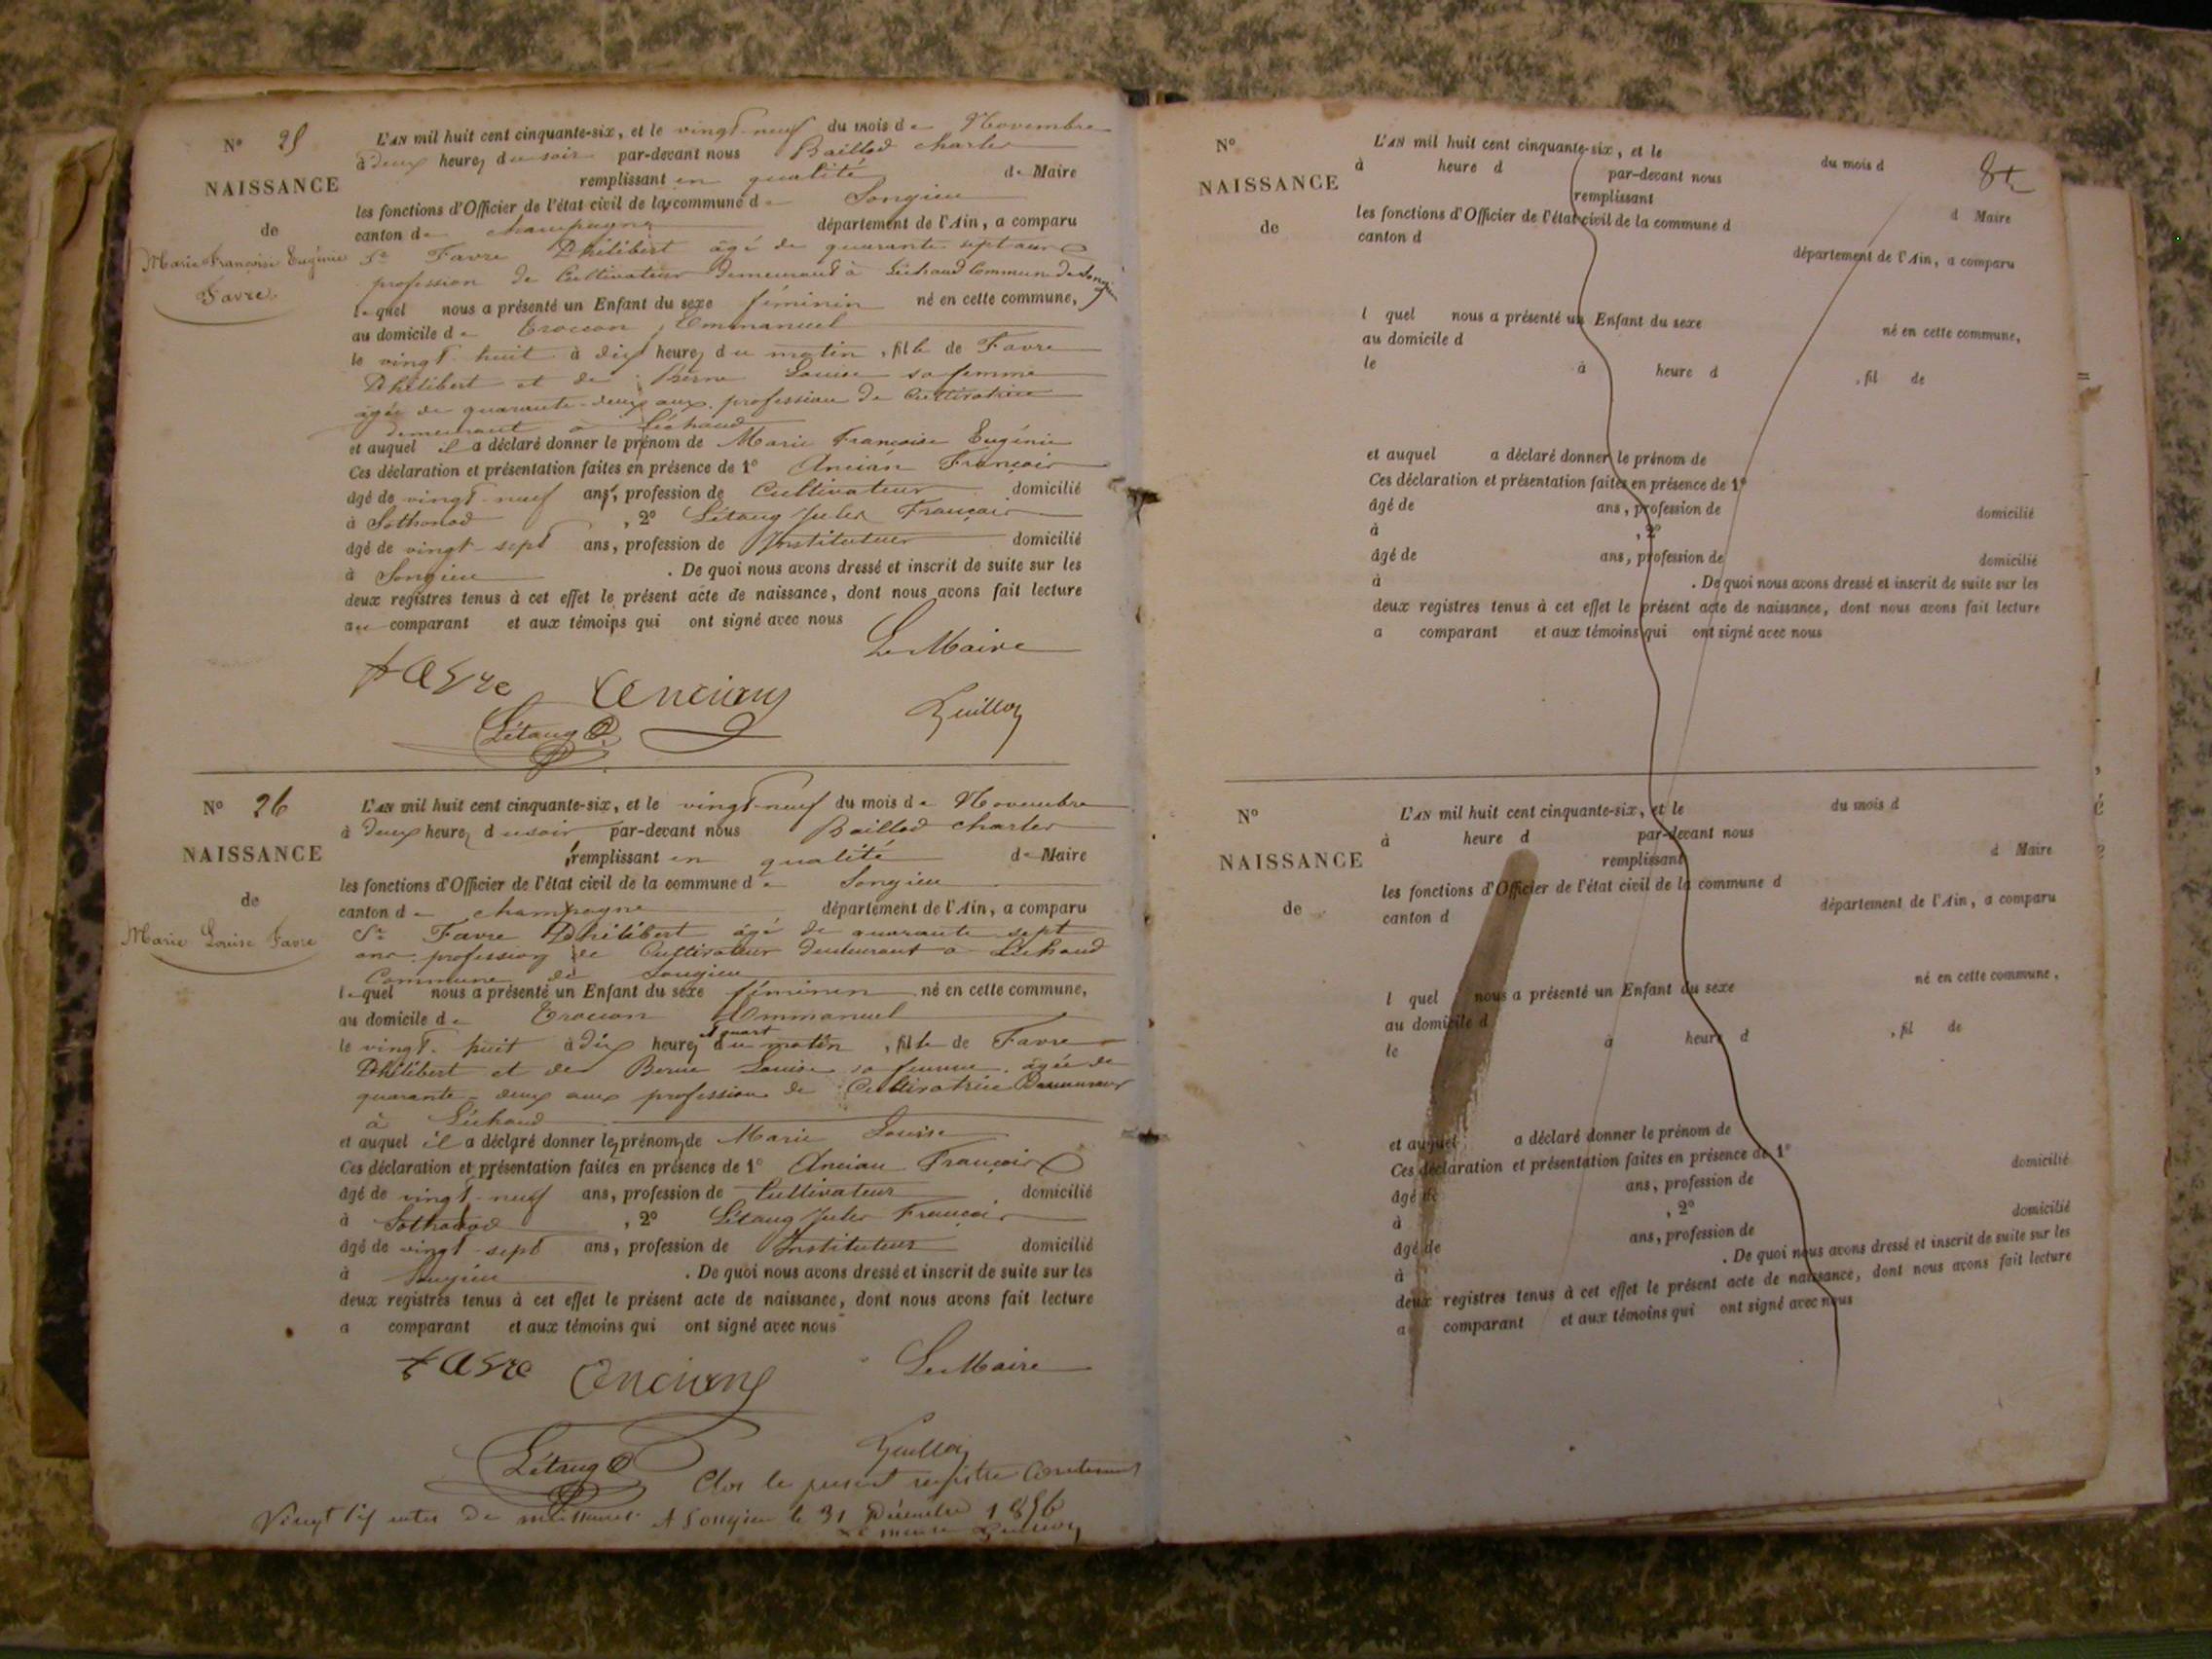 N° 25
NAISSANCE
de
Marie Françoise Eugénie
Favre
L'AN mil huit cent cinquante-six, et le vingt-neuf du mois de Novembre
à deux heures du soir par-devant nous Baillod Charles
remplissant en qualité de Maire
les fonctions d'Officier de l'état civil de la commune de Songieu
canton de Champagne département de l'Ain, a comparu
Sr Favre Philibert âgé de quarante-sept ans
profession de Cultivateur demeurant à Léchaud Commune de Songieu
lequel nous a présenté un Enfant du sexe féminin né en cette commune,
au domicile de Troccon Emmanuel
le vingt huit à dix heures du matin, fille de Favre
Philibert et de Berne Louise sa femme
âgée de quarante-deux ans profession de Cultivatrice
demeurant à Léchaud
et auquel il a déclaré donner le prénom de Marie Françoise Eugénie
Ces déclaration et présentation faites en présence de 1° Ancian François
âgé de vingt-neuf ans, profession de Cultivateur domicilié
à Sothonod , 2° Létang Jules François
âgé de vingt-sept ans, profession de Instituteur domicilié
à Songieu . De quoi nous avons dressé et inscrit de suite sur les
deux registres tenus à cet effet le présent acte de naissance, dont nous avons fait lecture
au comparant et aux témoins qui ont signé avec nous
Le Maire
favre Ancian
Létang
N° 26
NAISSANCE
de
Marie Louise Favre
L'AN mil huit cent cinquante-six, et le vingt-neuf du mois de Novembre
à deux heures du soir par-devant nous Baillod Charles
remplissant en qualité de Maire
les fonctions d'Officier de l'état civil de la commune de Songieu
canton de Champagne département de l'Ain, a comparu
Sr Favre Philibert âgé de quarante-sept
ans profession de Cultivateur demeurant à Léchaud
Commune de Songieu
lequel nous a présenté un Enfant du sexe féminin né en cette commune,
au domicile de Troccon Emmanuel
le vingt-huit à dix heures et quart du matin, fille de Favre
Philibert et de Berne Louise sa femme âgée de
quarante-deux ans profession de Cultivatrice Demeurant
à Léchaud
et auquel il a déclaré donner les prénoms de Marie Louise
Ces déclaration et présentation faites en présence de 1° Ancian François
âgé de vingt-neuf ans, profession de Cultivateur domicilié
à Sothonod , 2° Létang Jules François
âgé de vingt-sept ans, profession de Instituteur domicilié
à Songieu . De quoi nous avons dressé et inscrit de suite sur les
deux registres tenus à cet effet le présent acte de naissance, dont nous avons fait lecture
a comparant et aux témoins qui ont signé avec nous
favre Ancian Le Maire
Létang
Clos le présent registre contenant
Vingt six actes de naissances A Songieu le 31 Décembre 1856
Le maire
N°
NAISSANCE
de
L'AN mil huit cent cinquante-six, et le du mois d
à heure d par-devant nous
remplissant d Maire
les fonctions d'Officier de l'état civil de la commune d
canton d département de l'Ain, a comparu
l quel nous a présenté un Enfant du sexe né en cette commune,
au domicile d
le à heure d , fil de
et auquel a déclaré donner le prénom de
Ces déclaration et présentation faites en présence de 1°
âgé de ans, profession de domicilié
à , 2°
âgé de ans, profession de domicilié
à . De quoi nous avons dressé et inscrit de suite sur les
deux registres tenus à cet effet le présent acte de naissance, dont nous avons fait lecture
a comparant et aux témoins qui ont signé avec nous
N°
NAISSANCE
de
L'AN mil huit cent cinquante-six, et le du mois d
à heure d par-devant nous
remplissant d Maire
les fonctions d'Officier de l'état civil de la commune d
canton d département de l'Ain, a comparu
l quel nous a présenté un Enfant du sexe né en cette commune,
au domicile d
le à heure d , fil de
et auquel a déclaré donner le prénom de
Ces déclaration et présentation faites en présence de 1°
âgé de ans, profession de domicilié
à , 2°
âgé de ans, profession de domicilié
à . De quoi nous avons dressé et inscrit de suite sur les
deux registres tenus à cet effet le présent acte de naissance, dont nous avons fait lecture
a comparant et aux témoins qui ont signé avec nous